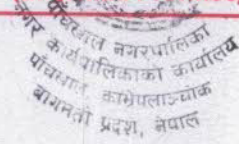 पाँचखाल नगरपालिका
नगर कार्यपालिकाको कार्यालय
पाँचखाल, काभ्रेपलाञ्चोक
बागमती प्रदेश, नेपाल